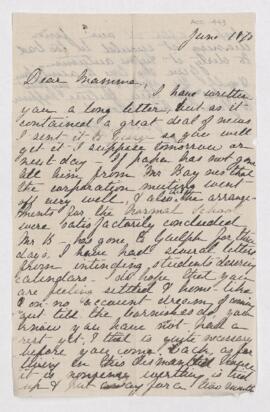 ACC 449
June 1870
Dear Mamma,
I have written
you a long letter, but as it
contained a great deal of news
I sent it to so you will
get it I suppose tomorrow or
next day. If papa has not gone
tell him from Mr Bayne that
the corporation meeting went
off very well, & also the arrange-
ments for the Normal School
were satisfactorily concluded
Mr B has gone to Guelph for two
days. I have had several letters
from intending students desiring
calendars. I do hope that you
are feeling settled & home-like
& on no account dream of coming
out till the you
know you have not had a
rest yet & that is quite necessary
before you come back, as for
living in this dismantled house
it is nonsense everything is tied
up & put away for a two month